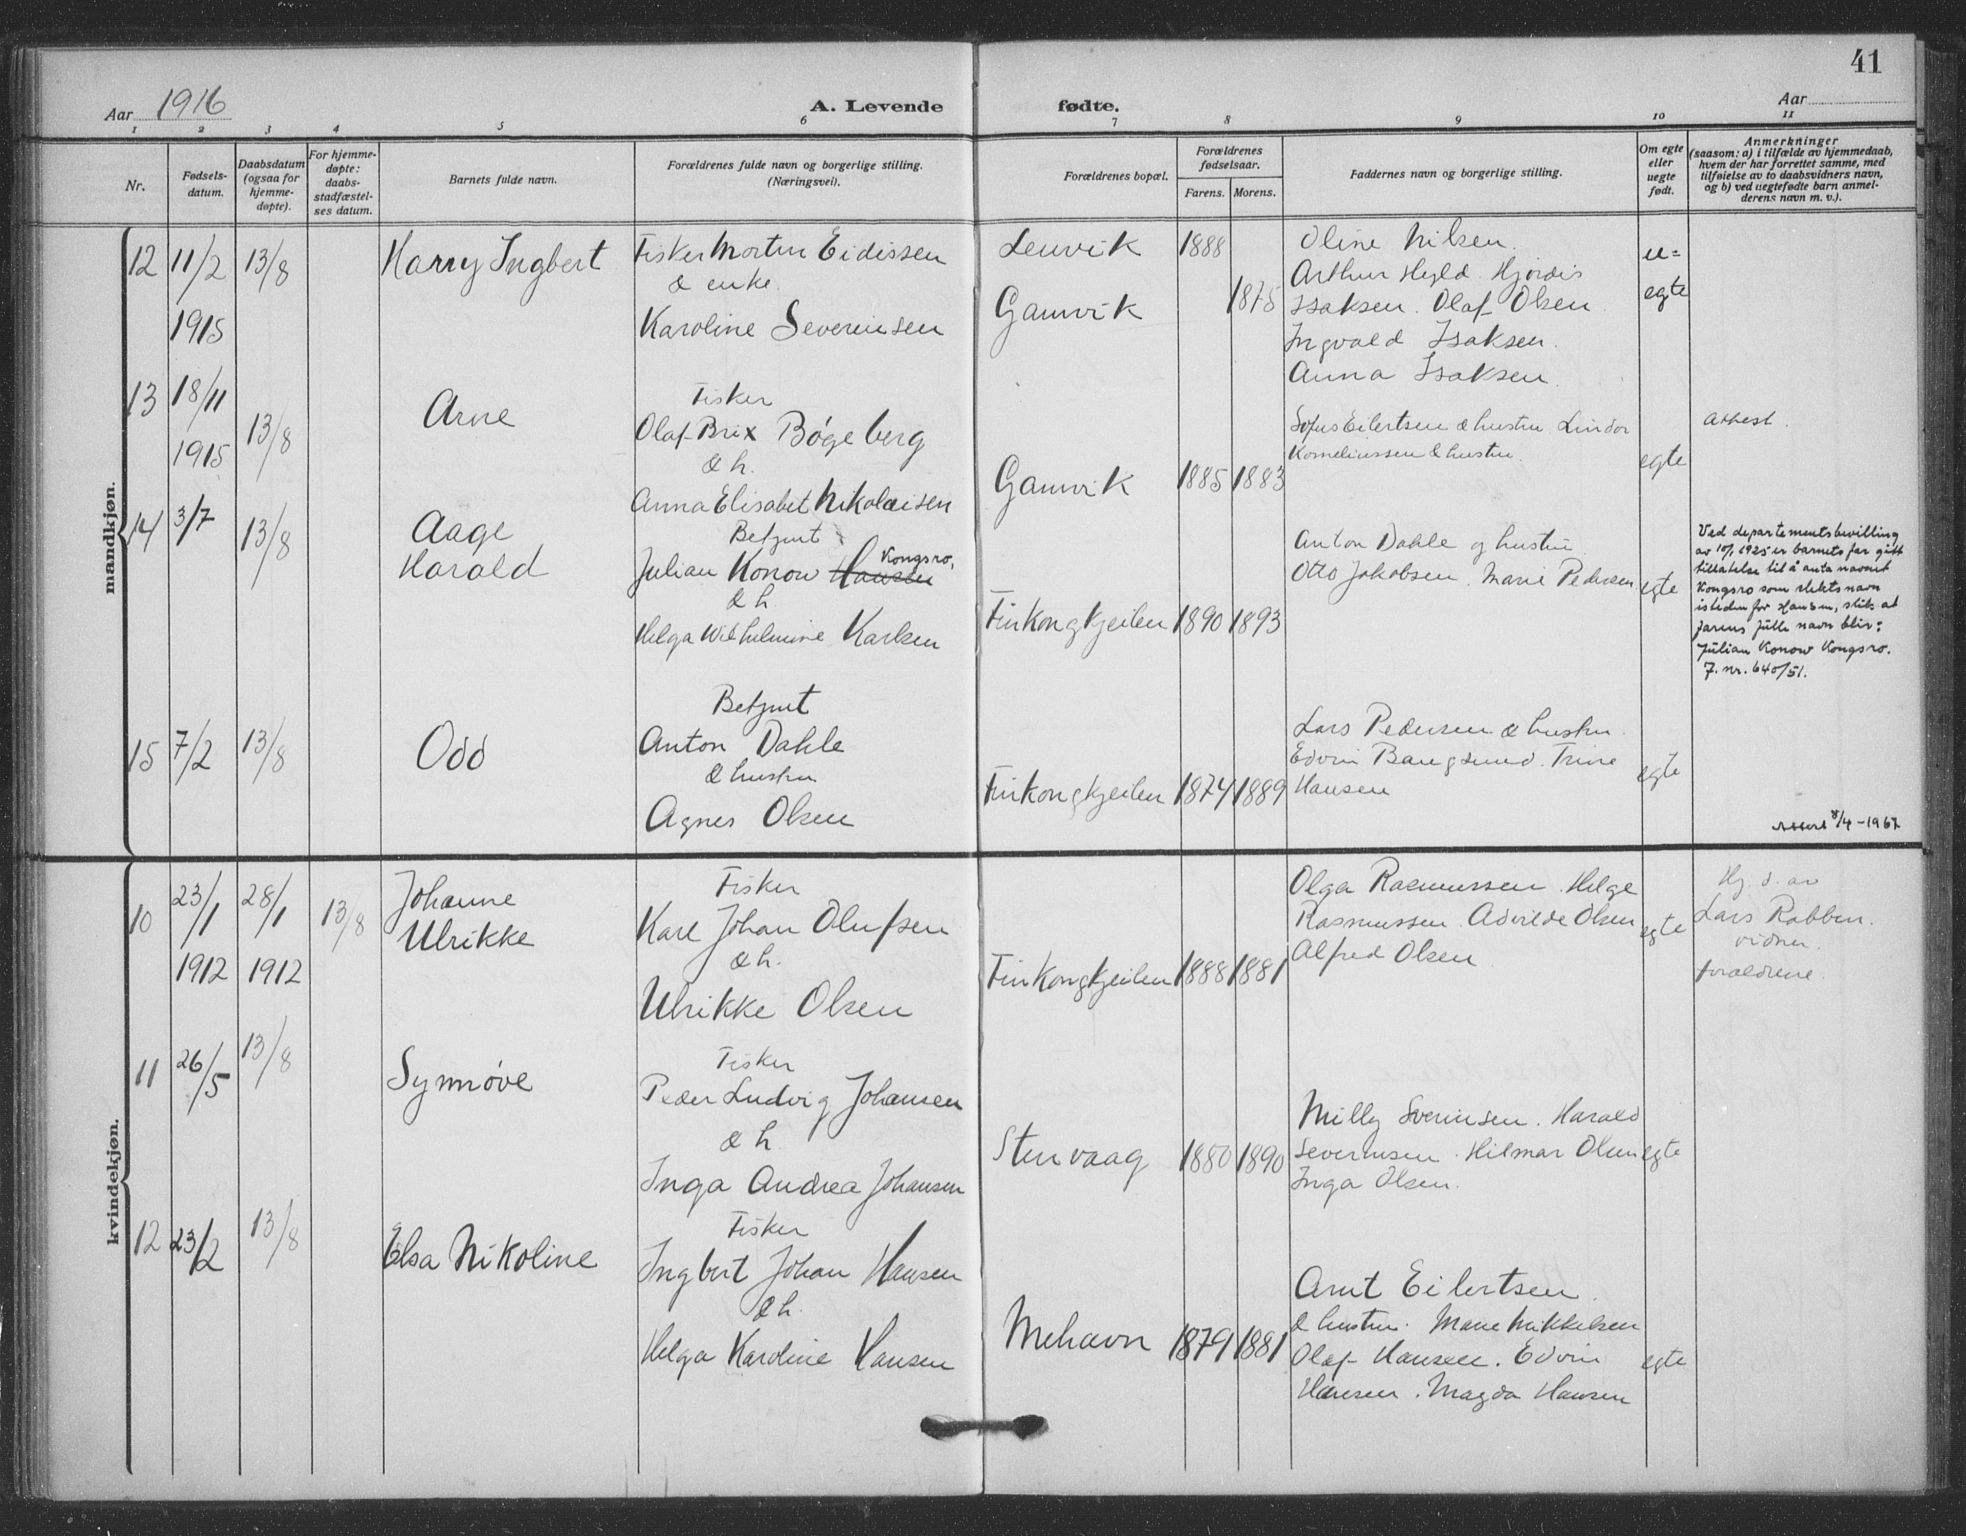 41
Aar 1916
A. Levende fødte.
Aar
1 2 3 4 5 6 7 8 9 10 11
Nr.
Fødsels-
datum.
Daabsdatum
(ogsaa for
hjemme-
døpte).
For hjemme-
døpte:
daabs-
stadfæstel-
ses datum.
Barnets fulde navn.
Forældrenes fulde navn og borgerlige stilling.
(Næringsvei).
Forældrenes bopæl.
Forældrenes
fødselsaar.
Farens. Morens.
Faddernes navn og borgerlige stilling.
Om egte
eller
uegte
født.
Anmerkninger
(saasom: a) i tilfælde av hjemmedaab,
hvem der har forrettet samme, med
tilføielse av to daabsvidners navn,
og b) ved uegtefødte barn anmel-
derens navn m. v.).
mandkjøn.
12 11/2 13/8
1915
Harry Ingbert
Fisker Morten Eidissen
& enke
Karoline Severinsen
Leuvik 1888
Gamvik 1875
Oline Nilsen.
Arthur Hyld. Hjördis
Isaksen. Olaf Olsen
Ingvald Isaksen.
Anna Isaksen.
u=
egte
13 18/11 13/8
1915
Arne
Fisker
Olaf Brix Bøgeberg
& h.
Anna Elisabet Nikolaisen
Gamvik 1885 1883
Sofus Eilertsen & hustru Lindor
Korneliussen & hustru.
egte
attest.
14 3/7 13/8
Aage
Harald
Betjent
Julian Konow Hansen Kongsro,
& h.
Helga Wilhelmine Karlsen
Finkongkjeilen 1890 1893
Anton Dahle og hustru
Otto Jakobsen. Marie Pedersen
egte
Ved departementsbevilling
av 10/1 1925 er barnets far gitt
tillatelse til å anta navnet
Kongsro som slektsnavn
isteden for Hansen, slik at
farens fulle navn blir:
Julian Konow Kongsro.
J. nr. 640/51.
15 7/2 13/8
Odd
Betjent
Anton Dahle
& hustru
Agnes Olsen
Finkongkjeilen 1874 1889
Lars Pedersen & hustru.
Edvin Bangsund. Trine
Hansen
egte
Attest 8/4-1967
kvindekjøn.
10 23/1 28/1 13/8
1912 1912
Johanne
Ulrikke
Fisker
Karl Johan Olufsen
& h.
Ulrikke Olsen
Finkongkjeilen 1888 1881
Olga Rasmussen. Helge
Rasmussen. Advilde Olsen
Alfred Olsen
egte
Hj. d. av
Lars Robben.
vidner.
forældrene.
11 26/5 13/8
Synnøve
Fisker
Peder Ludvig Johansen
& h.
Inga Andrea Johansen
Stenvaag 1880 1890
Milly Sverinsen. Harald
Severinsen. Hilmar Olsen
Inga Olsen.
egte
12 23/2 13/8
Elsa Nikoline
Fisker
Ingbert Johan Hansen
& h.
Helga Karoline Hansen
Mehavn 1879 1881
Arnt Eilertsen
& hustru. Marie Mikkelsen
Olaf Hansen. Edvin
Hansen. Magda Hansen
egte